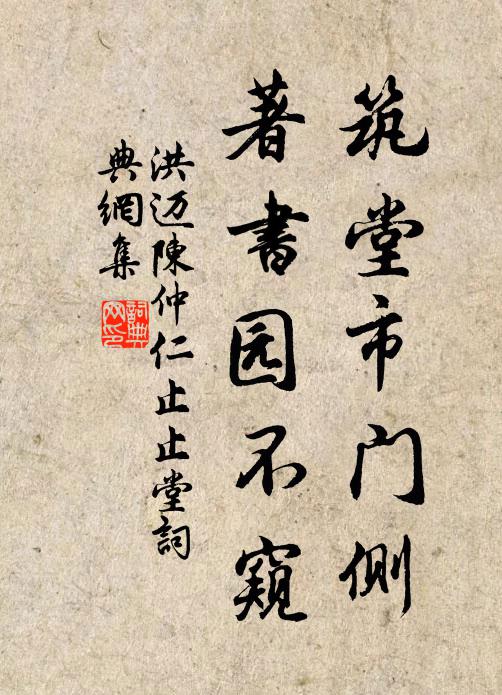 筑堂市门侧
著书园不窥
洪迈陳仲仁止止堂詞
典網集
詞典网印